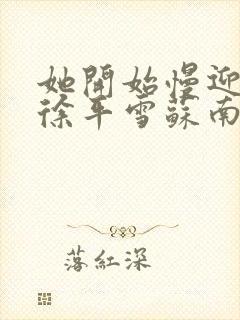 她開始慢迎
徐平雪蘇南
落紅深